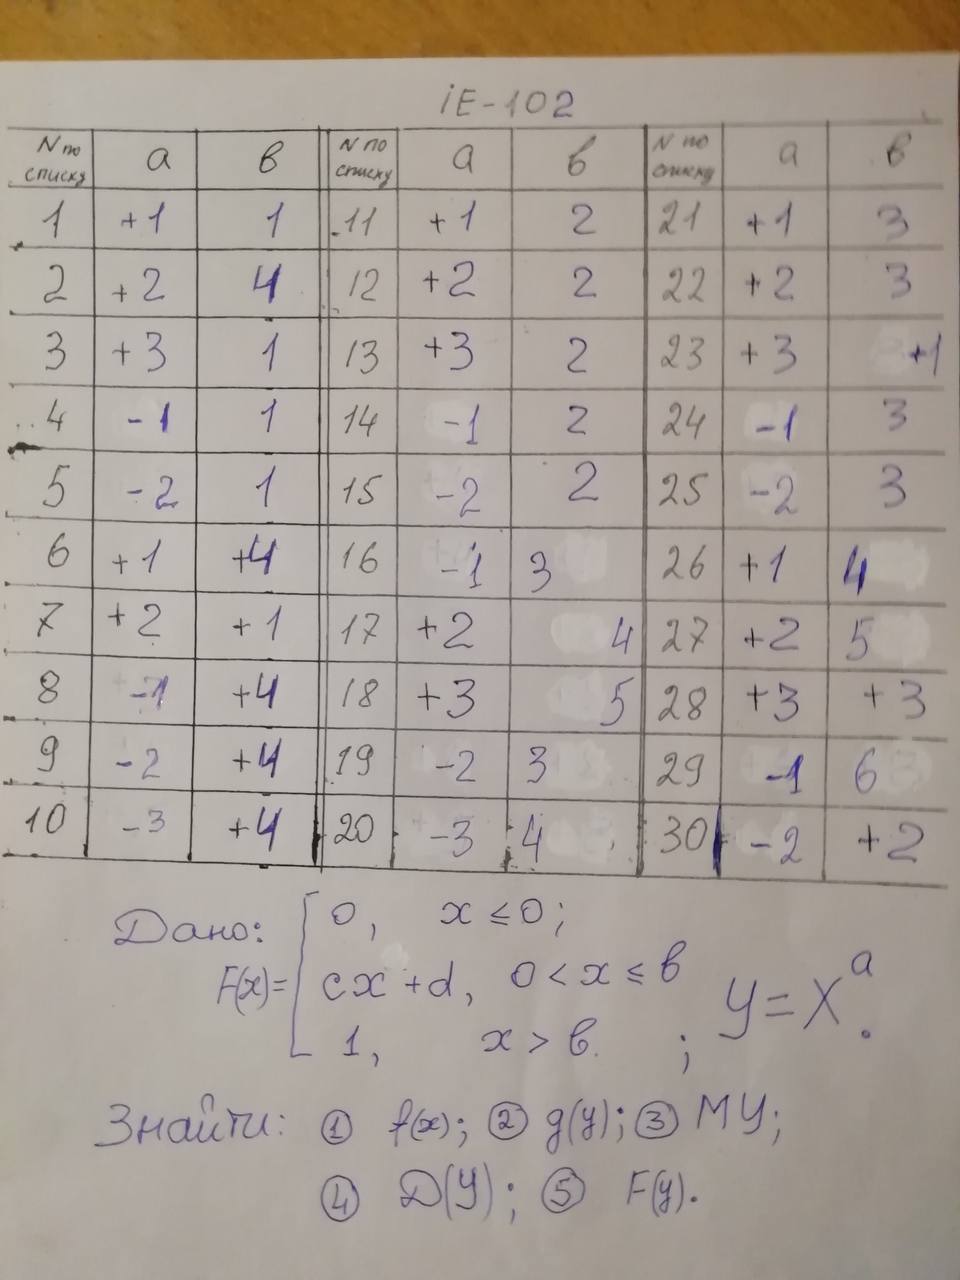 іЕ-102
N по списку a в N по списку a в N по списку a в
1 +1 1 11 +1 2 21 +1 3
2 +2 4 12 +2 2 22 +2 3
3 +3 1 13 +3 2 23 +3 +1
4 -1 1 14 -1 2 24 -1 3
5 -2 1 15 -2 2 25 -2 3
6 +1 +4 16 -1 3 26 +1 4
7 +2 +1 17 +2 4 27 +2 5
8 -1 +4 18 +3 5 28 +3 +3
9 -2 +4 19 -2 3 29 -1 6
10 -3 +4 20 -3 4 30 -2 +2
Дано: 0, x ≤ 0;
F(x)= cx + d, 0 < x ≤ в
1, x > в. ; y = x^a.
Знайти: ① f(x); ② g(y); ③ МУ;
④ D(У); ⑤ F(y).